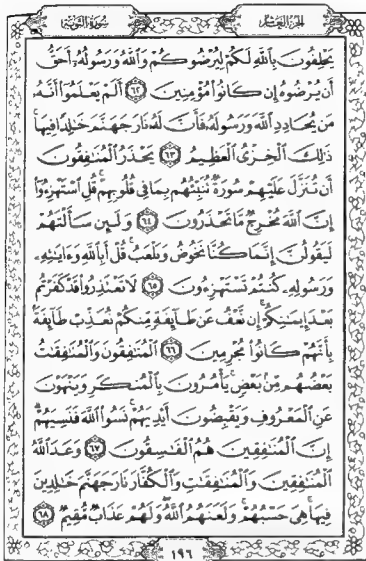 الجزء العاشر
سورة التوبة
يَحْلِفُونَ بِاللَّهِ لَكُمْ لِيُرْضُوكُمْ وَاللَّهُ وَرَسُولُهُ أَحَقُّ
أَن يُرْضُوهُ إِن كَانُوا مُؤْمِنِينَ ٦٢ أَلَمْ يَعْلَمُوا أَنَّهُ
مَن يُحَادِدِ اللَّهَ وَرَسُولَهُ فَأَنَّ لَهُ نَارَ جَهَنَّمَ خَالِدًا فِيهَا
ذَٰلِكَ الْخِزْيُ الْعَظِيمُ ٦٣ يَحْذَرُ الْمُنَافِقُونَ
أَن تُنَزَّلَ عَلَيْهِمْ سُورَةٌ تُنَبِّئُهُم بِمَا فِي قُلُوبِهِمْ قُلِ اسْتَهْزِءُوا
إِنَّ اللَّهَ مُخْرِجٌ مَّا تَحْذَرُونَ ٦٤ وَلَئِن سَأَلْتَهُمْ
لَيَقُولُنَّ إِنَّمَا كُنَّا نَخُوضُ وَنَلْعَبُ قُلْ أَبِاللَّهِ وَءَايَاتِهِ
وَرَسُولِهِ كُنتُمْ تَسْتَهْزِءُونَ ٦٥ لَا تَعْتَذِرُوا قَدْ كَفَرْتُم
بَعْدَ إِيمَانِكُمْ إِن نَّعْفُ عَن طَائِفَةٍ مِّنكُمْ نُعَذِّبْ طَائِفَةً
بِأَنَّهُمْ كَانُوا مُجْرِمِينَ ٦٦ الْمُنَافِقُونَ وَالْمُنَافِقَاتُ
بَعْضُهُم مِّن بَعْضٍ يَأْمُرُونَ بِالْمُنكَرِ وَيَنْهَوْنَ
عَنِ الْمَعْرُوفِ وَيَقْبِضُونَ أَيْدِيَهُمْ نَسُوا اللَّهَ فَنَسِيَهُمْ
إِنَّ الْمُنَافِقِينَ هُمُ الْفَاسِقُونَ ٦٧ وَعَدَ اللَّهُ
الْمُنَافِقِينَ وَالْمُنَافِقَاتِ وَالْكُفَّارَ نَارَ جَهَنَّمَ خَالِدِينَ
فِيهَا هِيَ حَسْبُهُمْ وَلَعَنَهُمُ اللَّهُ وَلَهُمْ عَذَابٌ مُّقِيمٌ ٦٨
١٩٦